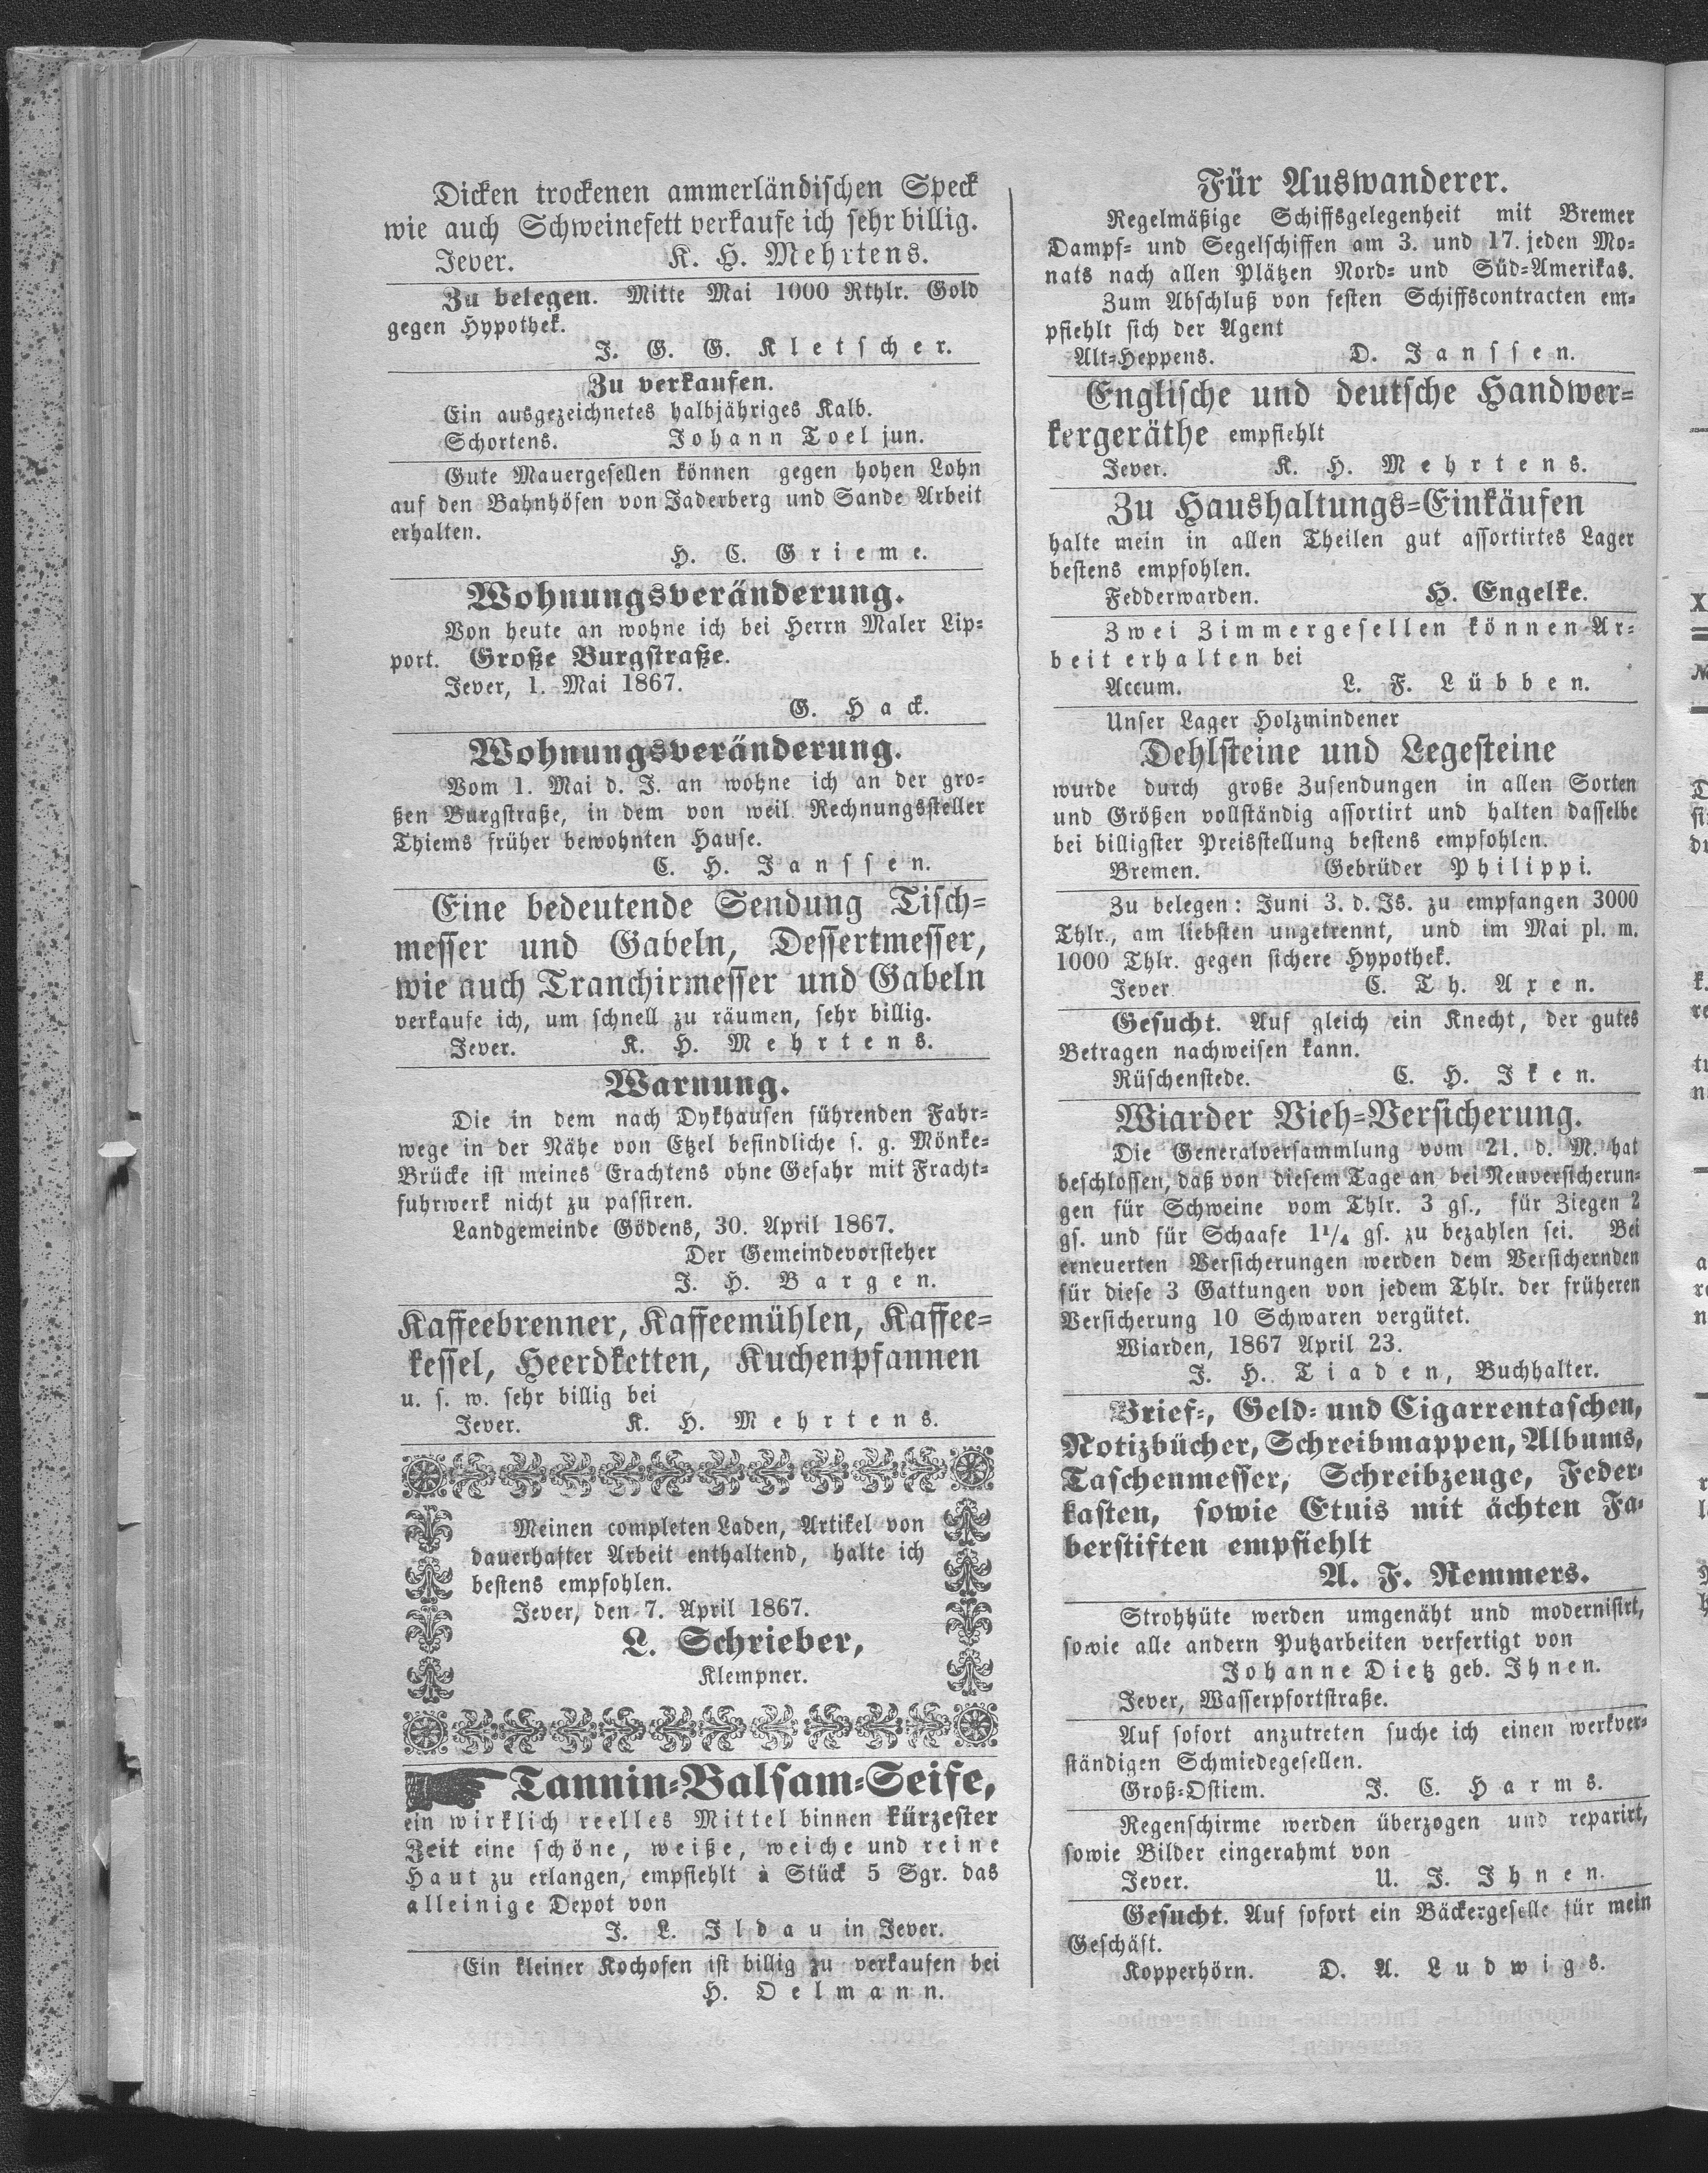 Dicken trockenen ammerländischen Speck
wie auch Schweinefett verkaufe ich sehr billig.
Jever. K. H. Mehrtens.
Zu belegen. Mitte Mai 1000 Rthlr. Gold
gegen Hypothek.
J. G. G. Kletscher.
Zu verkaufen.
Ein ausgezeichnetes halbjähriges Kalb.
Schortens. Johann Toel jun.
Gute Mauergesellen können gegen hohen Lohn
auf den Bahnhöfen von Jaderberg und Sande Arbeit
erhalten.
H. C. Grieme.
Wohnungsveränderung.
Von heute an wohne ich bei Herrn Maler Lip-
port. Große Burgstraße.
Jever, 1. Mai 1867.
G. Hack.
Wohnungsveränderung.
Vom 1. Mai d. J. an wohne ich an der gro-
ßen Burgstraße, in dem von weil. Rechnungssteller
Thiems früher bewohnten Hause.
C. H. Janssen.
Eine bedeutende Sendung Tisch-
messer und Gabeln, Dessertmesser,
wie auch Tranchirmesser und Gabeln
verkaufe ich, um schnell zu räumen, sehr billig.
Jever. K. H. Mehrtens.
Warnung.
Die in dem nach Dykhausen führenden Fahr-
wege in der Nähe von Etzel befindliche s. g. Mönke-
Brücke ist meines Erachtens ohne Gefahr mit Fracht-
fuhrwerk nicht zu passiren.
Landgemeinde Gödens, 30. April 1867.
Der Gemeindevorsteher
J. H. Bargen.
Kaffeebrenner, Kaffeemühlen, Kaffee-
kessel, Heerdketten, Kuchenpfannen
u. s. w. sehr billig bei
Jever. K. H. Mehrtens.
Meinen completen Laden, Artikel von
dauerhafter Arbeit enthaltend, halte ich
bestens empfohlen.
Jever, den 7. April 1867.
L. Schrieber,
Klempner.
Tannin-Balsam-Seife,
ein wirklich reelles Mittel binnen kürzester
Zeit eine schöne, weiße, weiche und reine
Haut zu erlangen, empfiehlt à Stück 5 Sgr. das
alleinige Depot von
J. L. Ildau in Jever.
Ein kleiner Kochofen ist billig zu verkaufen bei
H. Oelmann.
Für Auswanderer.
Regelmäßige Schiffsgelegenheit mit Bremer
Dampf- und Segelschiffen am 3. und 17. jeden Mo-
nats nach allen Plätzen Nord- und Süd-Amerikas.
Zum Abschluß von festen Schiffscontracten em-
pfiehlt sich der Agent
Alt-Heppens. D. Janssen.
Englische und deutsche Handwer-
kergeräthe empfiehlt
Jever. K. H. Mehrtens.
Zu Haushaltungs-Einkäufen
halte mein in allen Theilen gut assortirtes Lager
bestens empfohlen.
Fedderwarden. H. Engelke.
Zwei Zimmergesellen können Ar-
beit erhalten bei
Accum. L. F. Lübben.
Unser Lager Holzmindener
Dehlsteine und Legesteine
wurde durch große Zusendungen in allen Sorten
und Größen vollständig assortirt und halten dasselbe
bei billigster Preisstellung bestens empfohlen.
Bremen. Gebrüder Philippi.
Zu belegen: Juni 3. d. Js. zu empfangen 3000
Thlr., am liebsten ungetrennt, und im Mai pl. m.
1000 Thlr. gegen sichere Hypothek.
Jever C. Th. Axen.
Gesucht. Auf gleich ein Knecht, der gutes
Betragen nachweisen kann.
Rüschenstede. C. H. Iken.
Wiarder Vieh-Versicherung.
Die Generalversammlung vom 21. d. M. hat
beschlossen, daß von diesem Tage an bei Neuversicherun-
gen für Schweine vom Thlr. 3 gs., für Ziegen 2
gs. und für Schaafe 1 1/4 gs. zu bezahlen sei. Bei
erneuerten Versicherungen werden dem Versichernden
für diese 3 Gattungen von jedem Thlr. der früheren
Versicherung 10 Schwaren vergütet.
Wiarden, 1867 April 23.
J. H. Tiaden, Buchhalter.
Brief-, Geld- und Cigarrentaschen,
Notizbücher, Schreibmappen, Albums,
Taschenmesser, Schreibzeuge, Feder-
kasten, sowie Etuis mit ächten Fa-
berstiften empfiehlt
A. F. Remmers.
Strohhüte werden umgenäht und modernisirt,
sowie alle andern Putzarbeiten verfertigt von
Johanne Dietz geb. Ihnen.
Jever, Wasserpfortstraße.
Auf sofort anzutreten suche ich einen werkver-
ständigen Schmiedegesellen.
Groß-Ostiem. J. C. Harms.
Regenschirme werden überzogen und reparirt,
sowie Bilder eingerahmt von
Jever. U. J. Ihnen.
Gesucht. Auf sofort ein Bäckergeselle für mein
Geschäft.
Kopperhörn. D. A. Ludwigs.